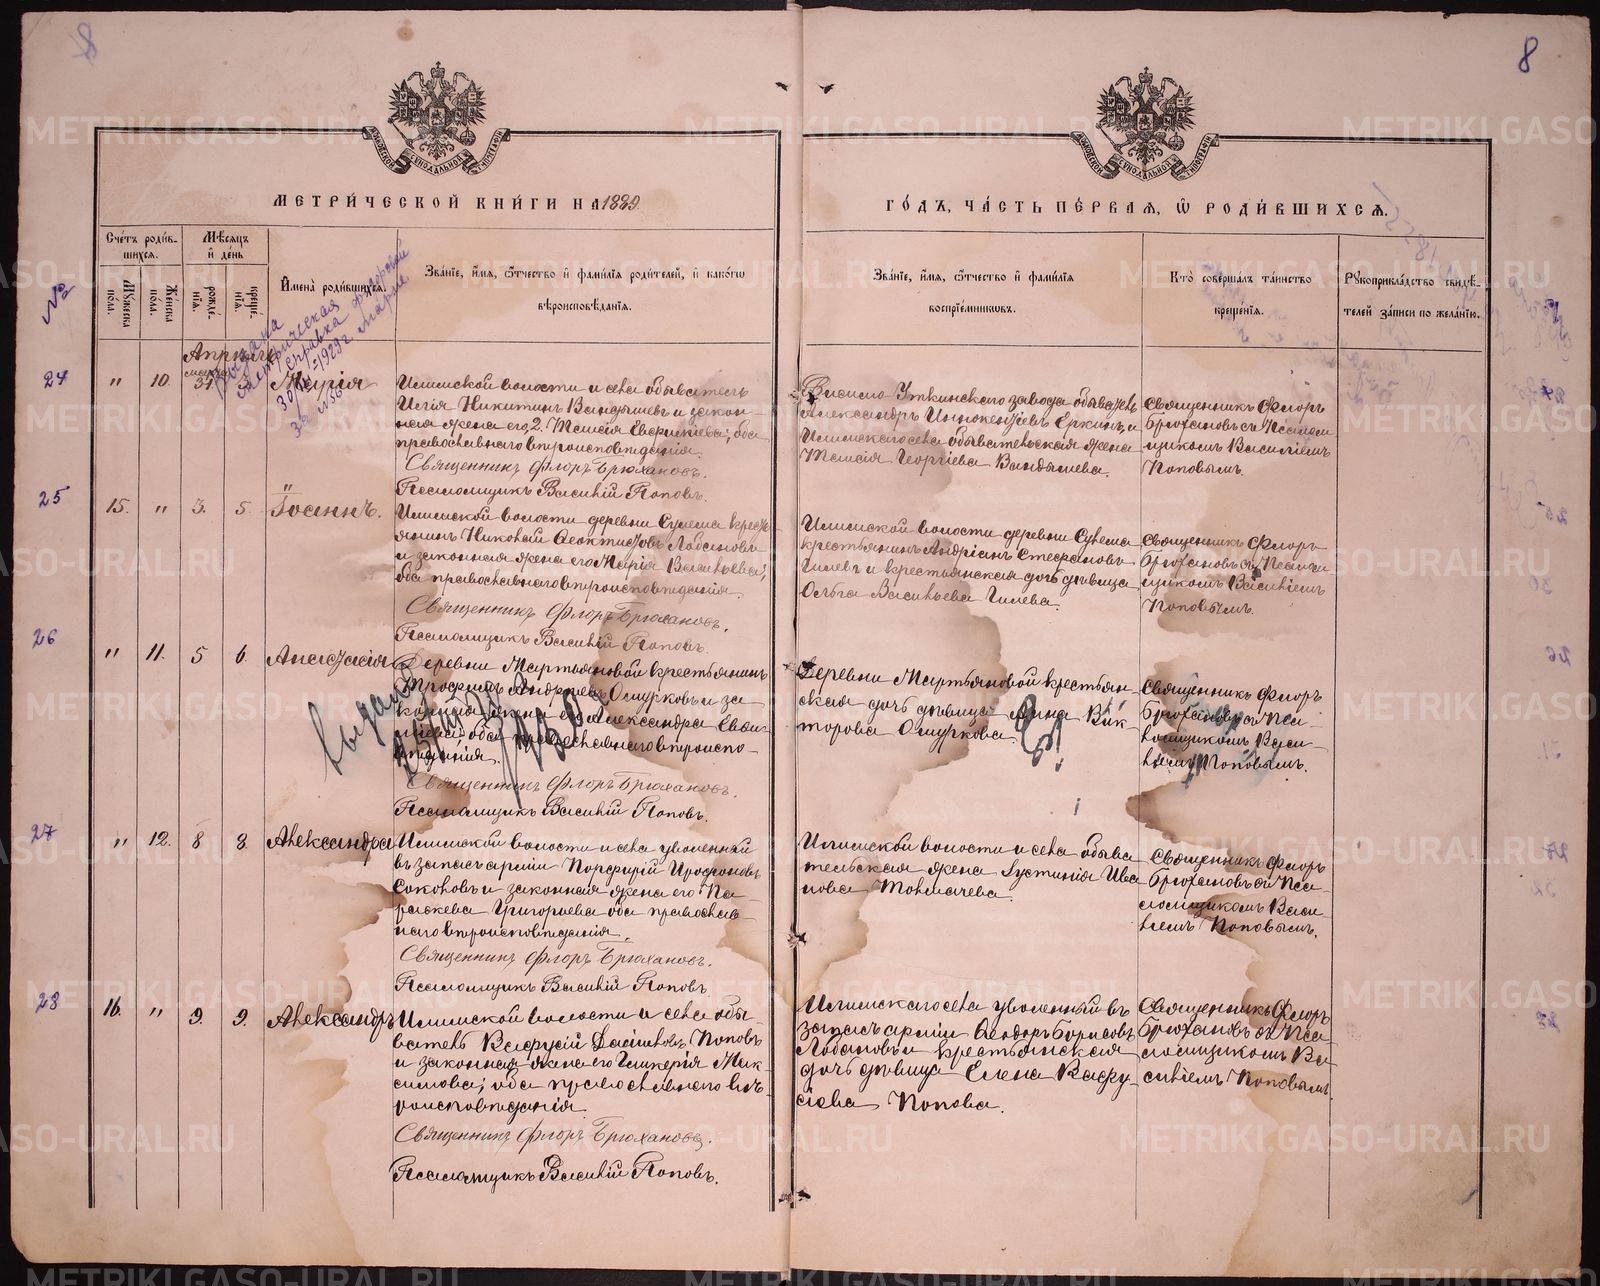 8
МОСКОВСКОЙ СѴНОДАЛЬНОЙ ТИПОГРАФІИ
МОСКОВСКОЙ СѴНОДАЛЬНОЙ ТИПОГРАФІИ
МЕТРИ́ЧЕСКОЙ КНИ́ГИ НА 1889
ГО́ДЪ, ЧА́СТЬ ПЕ́РВАЯ, Ѽ РОДИ́ВШИХСѦ.
№
Сче́тъ роди́в-
шихсѧ.
Мꙋ́жеска по́ла.
Же́нска по́ла.
Мѣ́сѧцъ
и҆ де́нь
рожде́-нїѧ.
креще́-нїѧ.
И҆мена̀ роди́вшихсѧ.
Зва́нїе, и҆́мѧ, ѻ҆́тчество и҆ фами́лїѧ роди́телей, и҆ како́гѡ
вѣроисповѣ́данїѧ.
Зва́нїе, и҆́мѧ, ѻ҆́тчество и҆ фами́лїѧ
воспрїе́мникѡвъ.
Кто̀ соверша́лъ та́инство
креще́нїѧ.
Рꙋкоприкла́дство свидѣ́-
телей за́писи по жела́нїю.
Выдана
метрическая
справка
30/ 1929 г.
за № 36
Марии
Апрѣля
24
" 10. 31. 3. Марія
Илимской волости и села обыватель
Илія Никитинъ Вандышевъ и закон-
ная жена его 2. Таисія ; оба
православнаго вѣроисповѣданія.
Священникъ Флоръ Брюхановъ.
Псаломщикъ Василій Поповъ.
Уткинскаго завода обыватель
Александръ Иннокентіевъ Еркинъ и
Илимскаго села обывательская жена
Таисія Георгіева Вандышева.
Священникъ Флоръ
Брюхановъ съ Псалом
щикомъ Василіемъ
Поповымъ.
25
15. " 3. 5. Іоаннъ.
Илимской волости деревни Сулема кресть
янинъ Николай Феоктистовъ Лобановъ
и законная жена его Марія Васильева;
оба православнаго вѣроисповѣданія.
Священникъ Флоръ Брюхановъ.
Псаломщикъ Василій Поповъ.
Илимской волости деревни Сулема
крестьянинъ Андріанъ Стефановъ
Гилевъ и крестьянская дочь дѣвица
Ольга Васильева Гилева.
Священникъ Флоръ
Брюхановъ съ Псалом
щикомъ Василіемъ
Поповымъ.
26
" 11. 5 6. Анастасія
Деревни Мартьяновой крестьянинъ
Трофимъ Андреевъ Ошурковъ и за
конная жена его Александра
оба православнаго вѣроиспо-
вѣданія.
Священникъ Флоръ Брюхановъ.
Псаломщикъ Василій Поповъ.
Выдана
Деревни Мартьяновой крестьян-
ская дочь дѣвица Анна Вик-
торова Ошуркова.
Священникъ Флоръ
Брюхановъ съ Пса-
ломщикомъ Васи-
ліемъ Поповымъ.
27
" 12. 8 8. Александра
Илимской волости и села уволенный
въ запасъ арміи Порфирій Профоновъ
Соколовъ и законная жена его Па-
раскева Григорьева оба православ-
наго вѣроисповѣданія.
Священникъ Флоръ Брюхановъ.
Псаломщикъ Василій Поповъ
Илимской волости и села обыва
тельская жена Іустинія Ива
нова Толмачева.
Священникъ Флоръ
Брюхановъ съ Пса-
ломщикомъ Васи-
ліемъ Поповымъ.
28
16. " 9. 9. Александръ
Илимской волости и села обы-
ватель Вафусій Даніиловъ Поповъ
и законная жена его Гликерія Мак-
симова; оба православнаго вѣ-
роисповѣданія.
Священникъ Флоръ Брюхановъ.
Псаломщикъ Василій Поповъ.
Илимскаго села уволенный въ
запасъ арміи Феодоръ Борисовъ
Лобановъ и крестьянская
дочь дѣвица Елена Вафу
сіева Попова.
Священникъ Флоръ
Брюхановъ съ Пса
ломщикомъ Ва
силіемъ Поповымъ.
METRIKI.GASO-URAL.RU